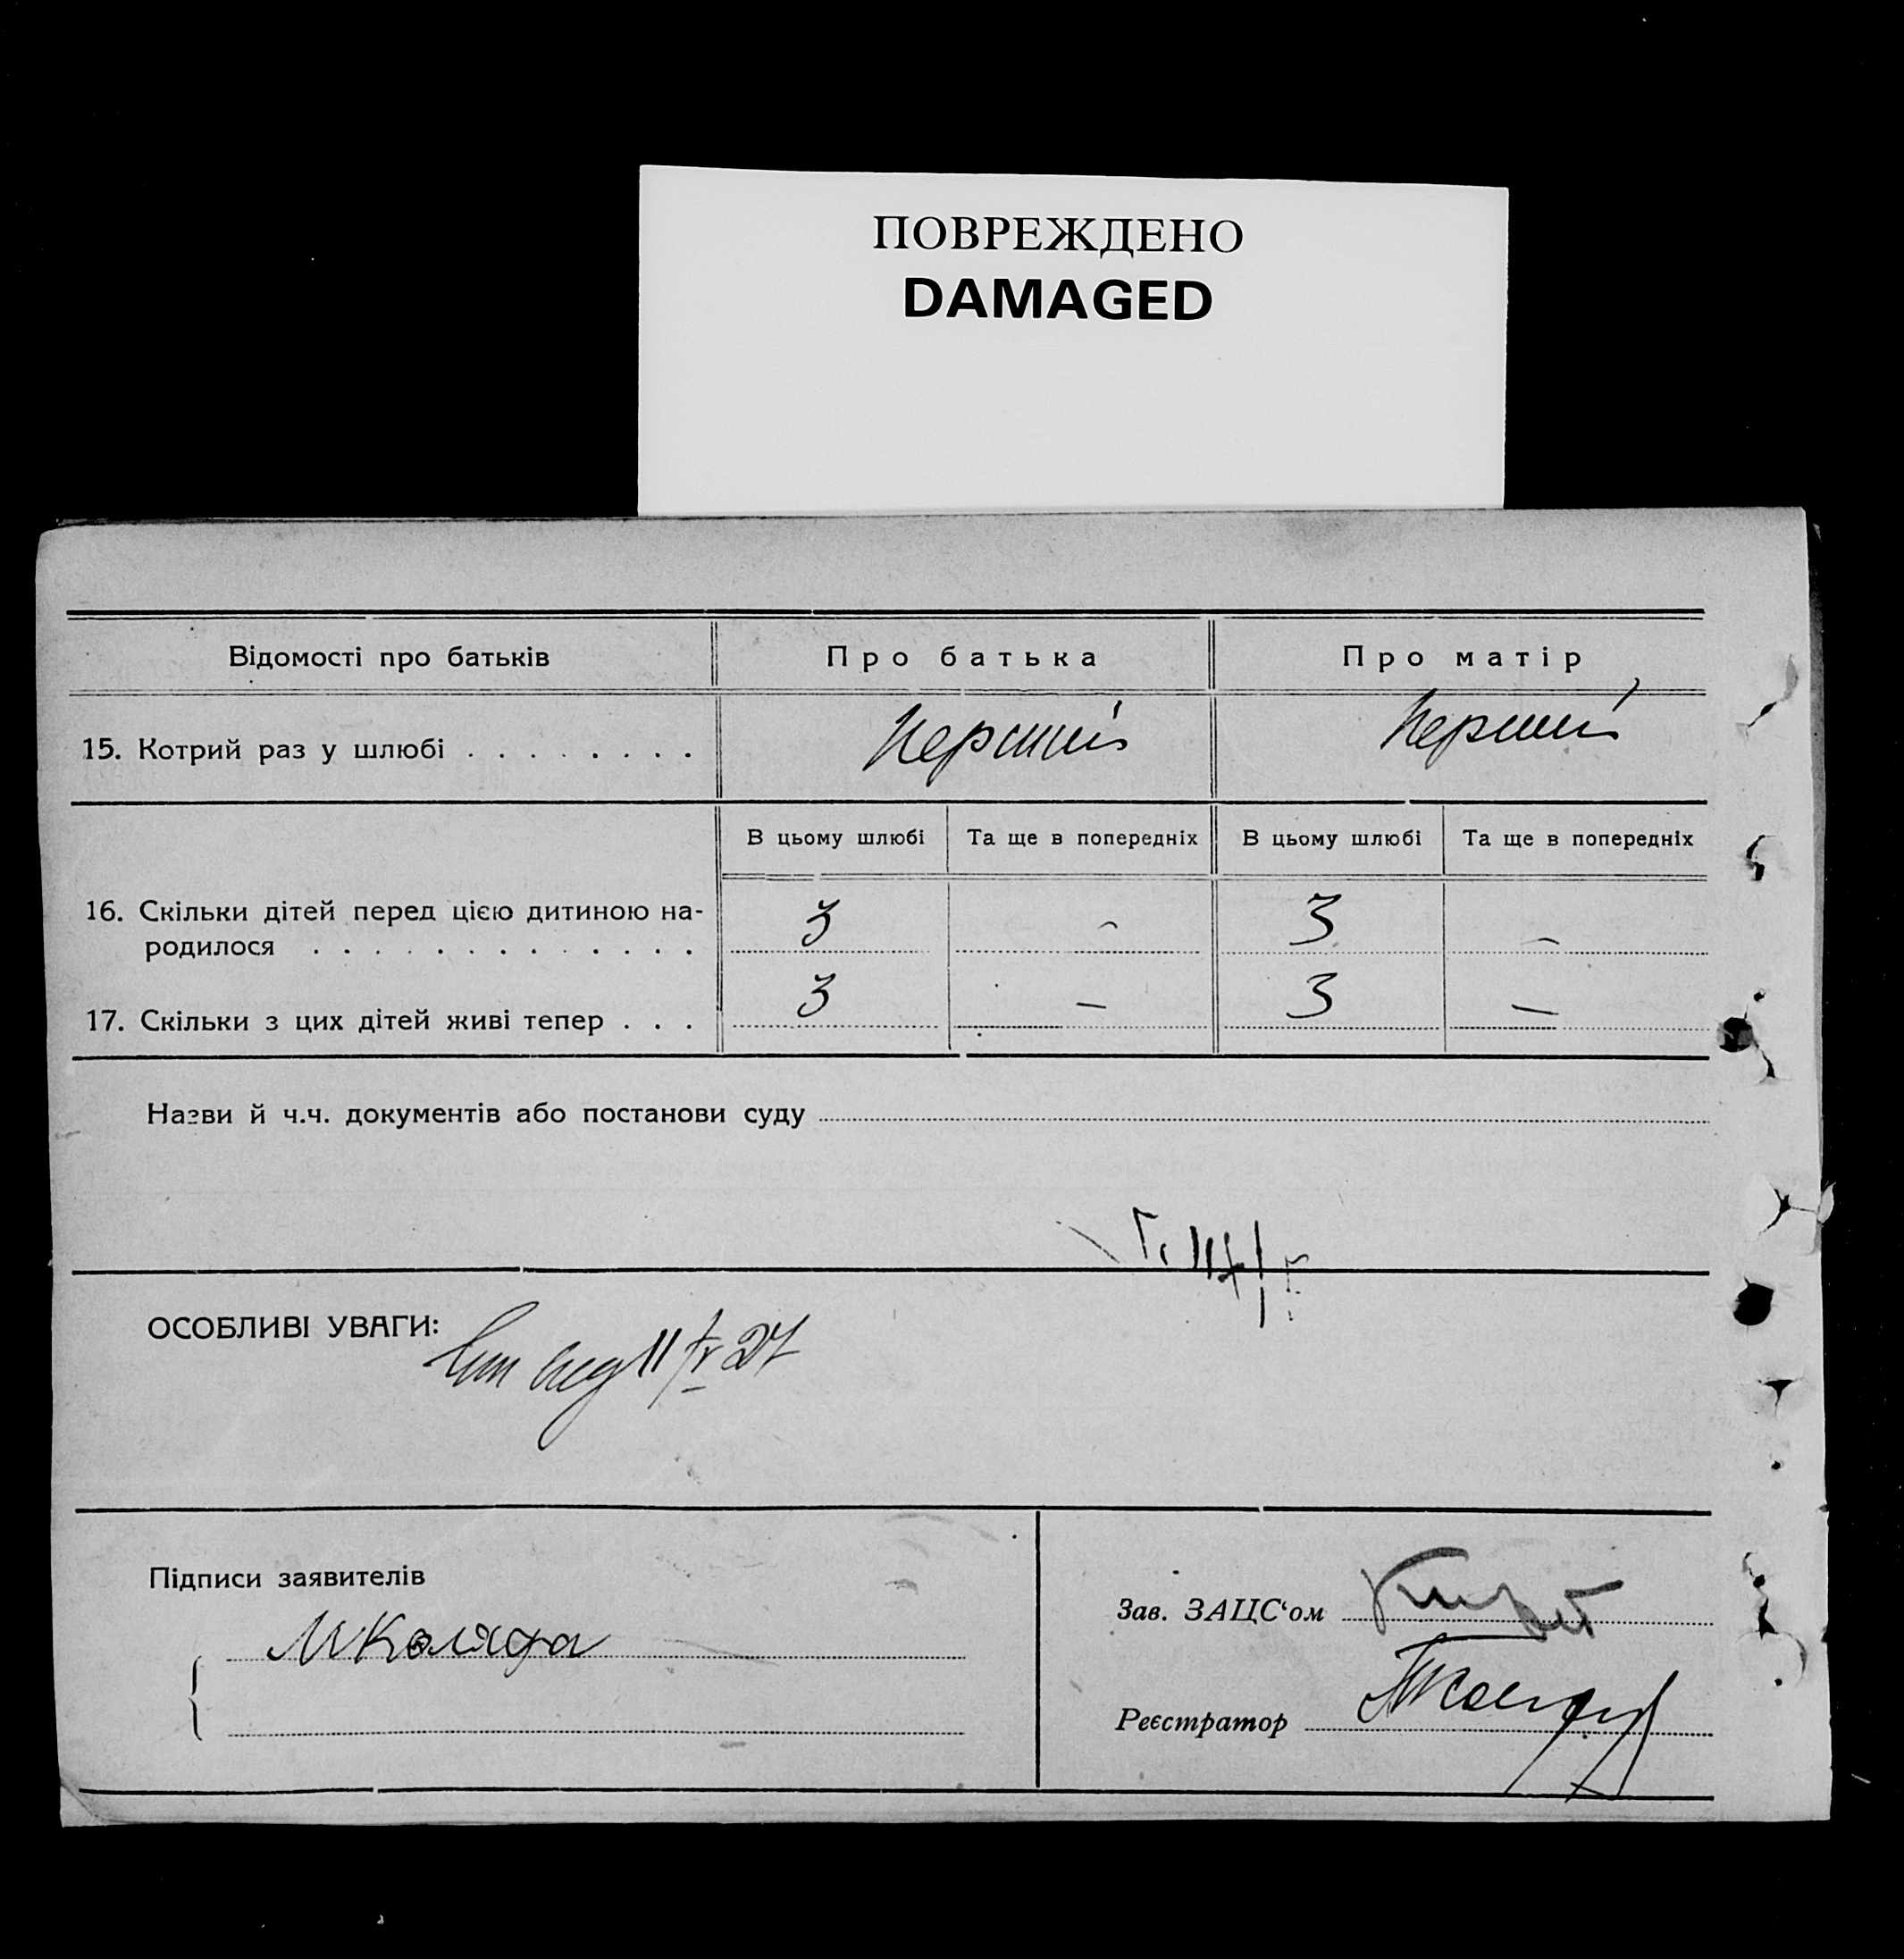 ПОВРЕЖДЕНО
DAMAGED
Відомості про батьків Про батька Про матір
15. Котрий раз у шлюбі . . . . . . . . Перший Перший
В цьому шлюбі Та ще в попередніх В цьому шлюбі Та ще в попередніх
16. Скільки дітей перед цією дитиною на-
родилося . . . . . . . . . . . . . 3 – 3 –
17. Скільки з цих дітей живі тепер . . . 3 – 3 –
Назви й ч.ч. документів або постанови суду
ОСОБЛИВІ УВАГИ:
11/IV 27
Підписи заявителів
МКоляда
Зав. ЗАЦС‘ом
Реєстратор